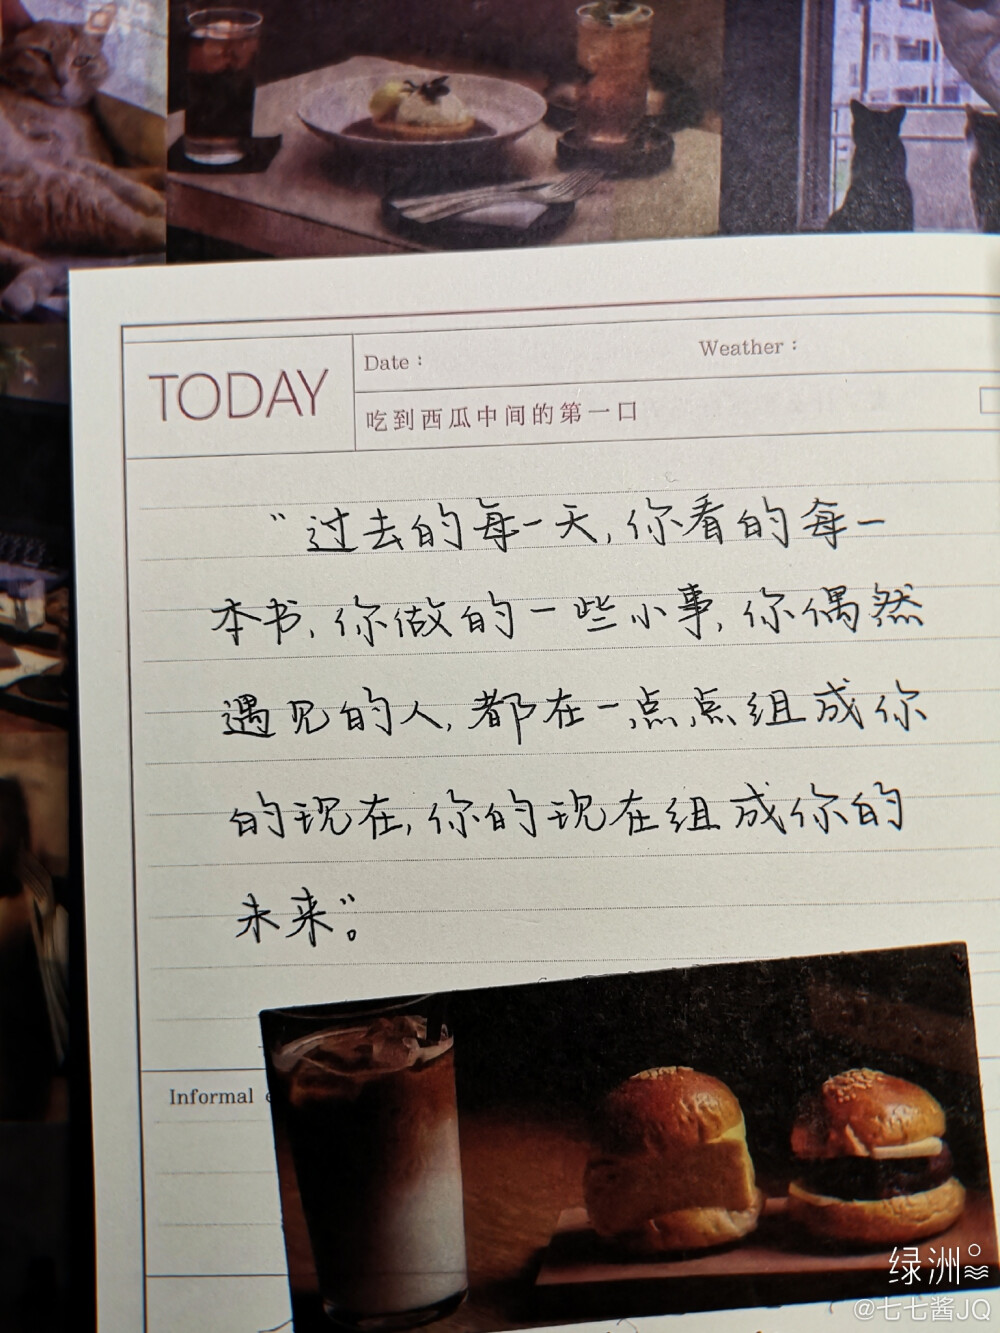 TODAY
Date：
Weather：
吃到西瓜中间的第一口
“过去的每一天，你看的每一
本书，你做的一些小事，你偶然
遇见的人，都在一点点组成你
的现在，你的现在组成你的
未来”。
Informal
绿洲
@七七酱JQ